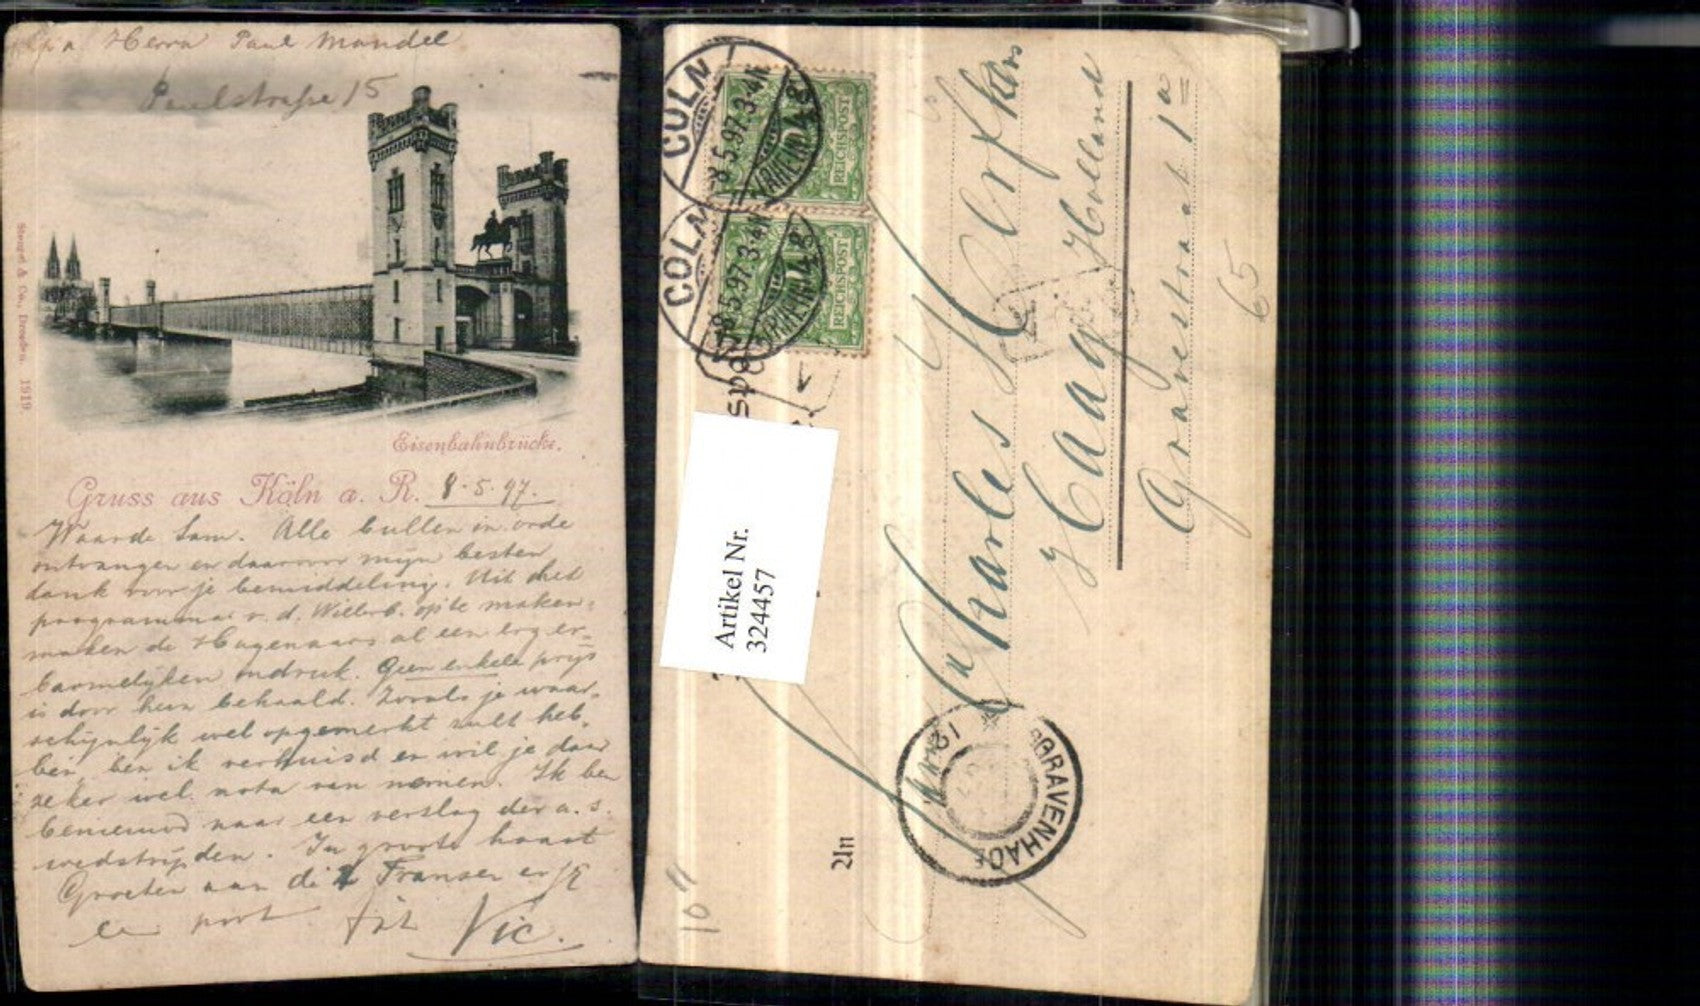 p. a. Herrn Paul Mandel
Paulstrasse 15
Stengel & Co., Dresden. 1919
Eisenbahnbrücke.
Gruss aus Köln a. R. 8.5.97.
Waarde Sam. Alle bullen in orde
ontvangen en daarvoor mijn besten
dank voor je bemiddeling. Uit het
programma v. d. Willeb. op te maken,
maken de Hagenaars al een erg er-
barmelijken indruk. Geen enkele prijs
is door hen behaald. Zooals je waar-
schijnlijk wel opgemerkt zult heb-
ben, ben ik verhuisd en wil je daar
zeker wel nota van nemen. Ik ben
benieuwd naar een verslag der a. s.
wedstrijden. In groote haast
Groeten aan de Fransen en
Vic.
CÖLN
8.5.97.3-4N
REICHSPOST
CÖLN
8.5.97.3-4N
REICHSPOST
Artikel Nr.
324457
An
Charles
Haag Holland
Gravestraat 1a
'S GRAVENHAGE
12
65
10"